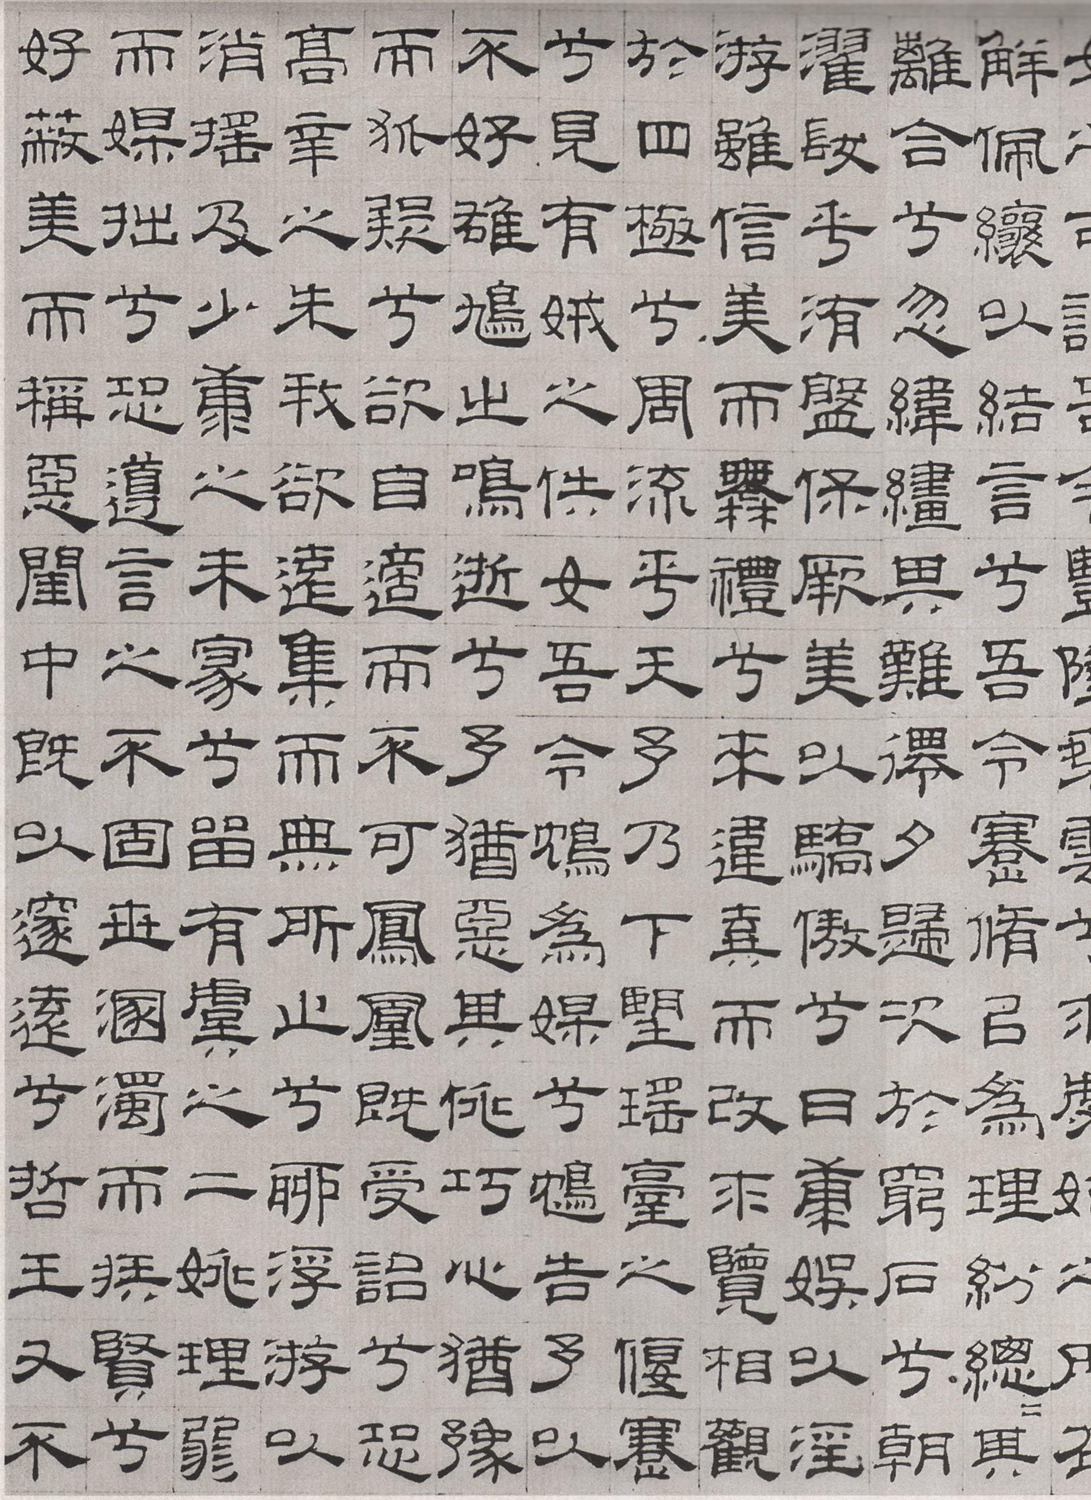 女之可詒吾令豐隆乘雲兮求虙妃之所在
解佩纕以結言兮吾令蹇脩㠯為理紛總〻其
離合兮忽緯繣其難遷夕歸次於窮石兮朝
濯髮乎洧盤保厥美以驕傲兮日康娛以淫
游雖信美而無禮兮來違棄而改求覽相觀
於四極兮周流乎天予乃下望瑤臺之偃蹇
兮見有娀之佚女吾令鴆為媒兮鴆告予以
不好雄鳩之鳴逝兮予猶惡其佻巧心猶豫
而狐疑兮欲自適而不可鳳凰既受詒兮恐
高辛之先我欲遠集而無所止兮聊浮游以
消搖及少康之未家兮留有虞之二姚理弱
而媒拙兮恐導言之不固世溷濁而疾賢兮
好蔽美而稱惡閨中既以邃遠兮哲王又不